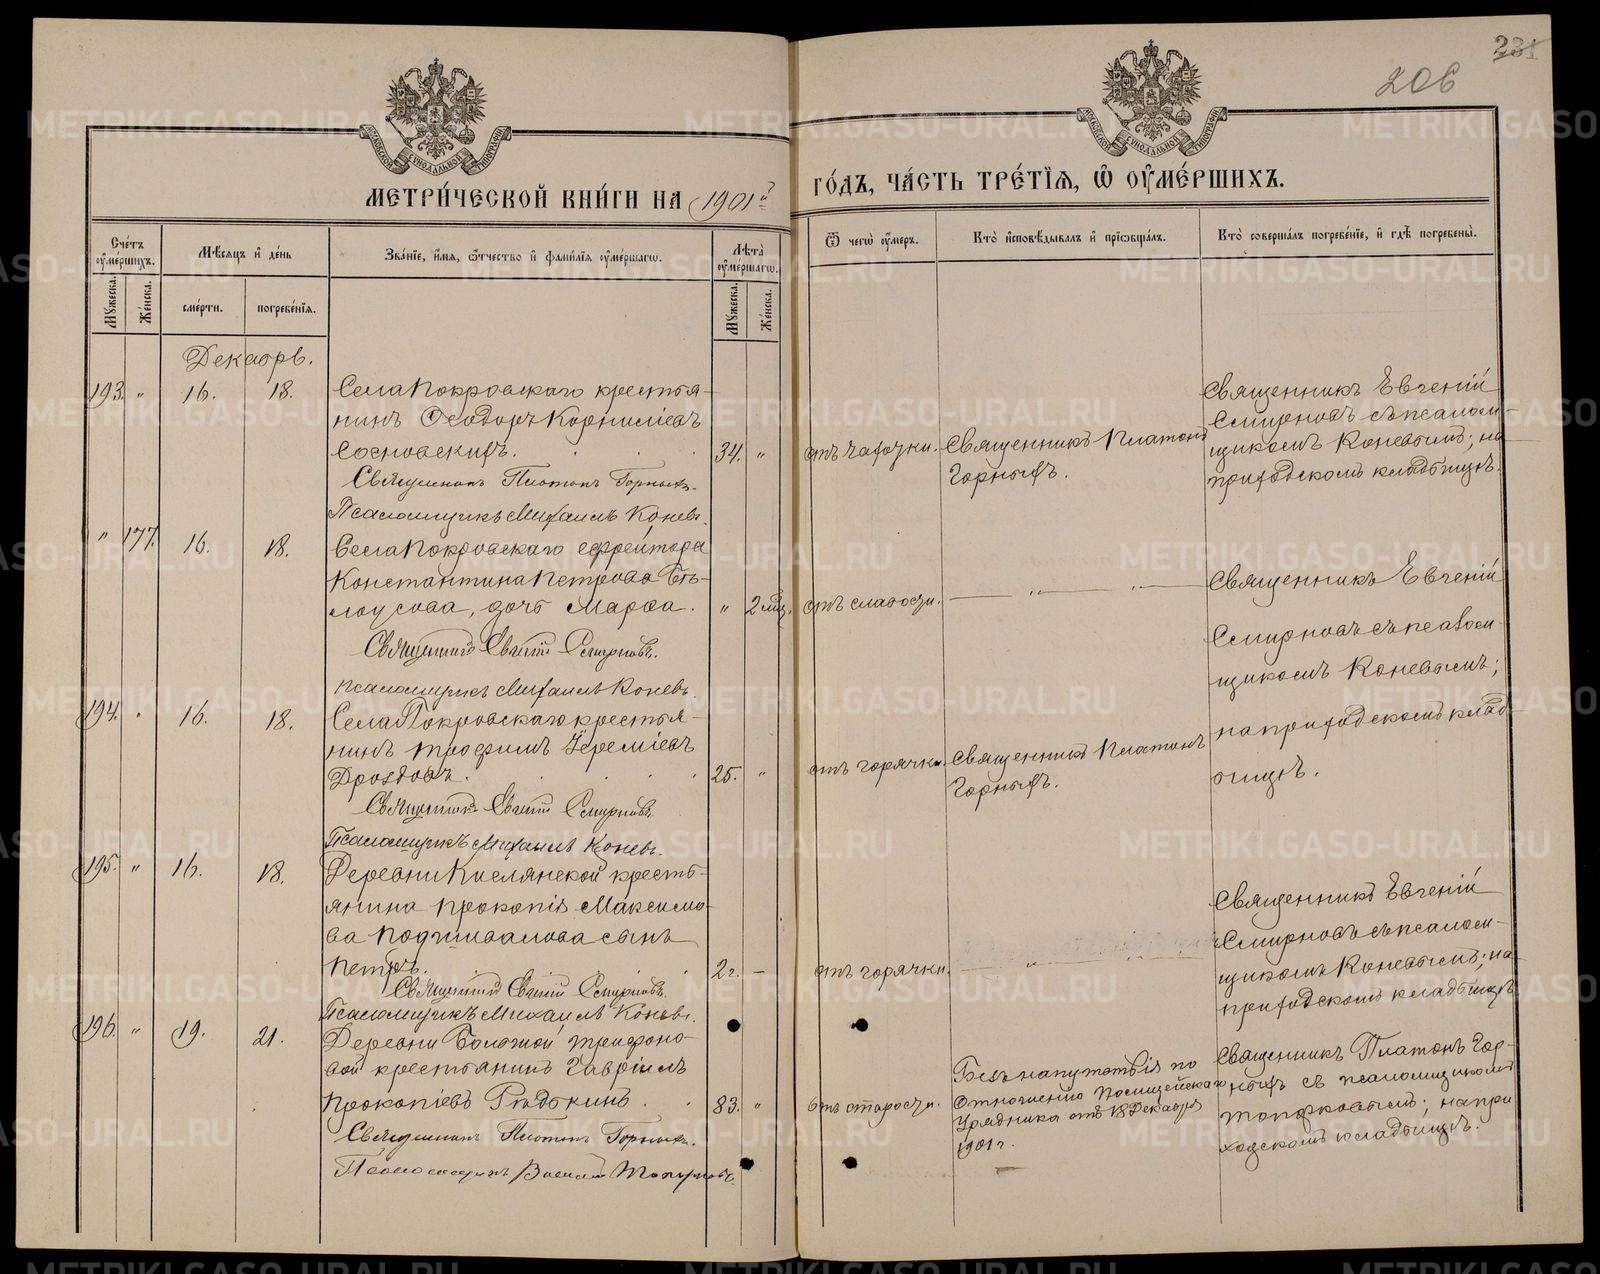 231
206
МЕТРИ́ЧЕСКОЙ КНИ́ГИ НА 1901 й
ГО́ДЪ, ЧА́СТЬ ТРЕ́ТІѦ, Ѡ ОУ҆МЕ́РШИХЪ.
Сче́тъ оу҆ме́ршихъ.
Мꙋжеска.
Же́нска.
Мѣ́сѧцъ и҆ де́нь
сме́рти.
погребе́нїѧ.
Зва́нїе, и҆́мѧ, ѻ҆́тчество и҆ фами́лїѧ оу҆ме́ршагѡ.
Лѣ́та оу҆ме́ршагѡ.
Мꙋжеска.
Же́нска.
Ѿ чегѡ̀ оу҆́меръ.
Кто̀ и҆сповѣ́дывалъ и҆ прїѡбща́лъ.
Кто̀ соверша́лъ погребе́нїе, и҆ гдѣ̀ погребены̀.
Декабрь.
193. " 16. 18.
Села Покровскаго крестья-
нинъ Ѳеодоръ Корниліевъ
Сосновскихъ. 34. "
Священникъ Платонъ Горныхъ.
Псаломщикъ Михаилъ Коневъ.
отъ чахотки.
Священникъ Платонъ
Горныхъ.
Священникъ Евгеній
Смирновъ съ псалом-
щикомъ Коневымъ; на
приходскомъ кладбищѣ.
" 177. 16. 18.
Села Покровскаго ефрейтора
Константина Петрова Бѣ-
лоусова, дочь Марѳа. " 2 мѣс.
Священникъ Евгеній Смирновъ.
Псаломщикъ Михаилъ Коневъ.
отъ слабости.
— " — " —
Священникъ Евгеній
Смирновъ съ псалом-
щикомъ Коневымъ;
на приходскомъ клад-
бищѣ.
194. " 16. 18.
Села Покровскаго крестья-
нинъ Трофимъ Іереміевъ
Дроздовъ. 25. "
Священникъ Евгеній Смирновъ.
Псаломщикъ Михаилъ Коневъ.
отъ горячки.
Священникъ Платонъ
Горныхъ.
195. " 16. 18.
Деревни Кислянской кресть-
янина Прокопія Максимо-
ва Подшивалова сынъ
Петръ. 2 г. —
Священникъ Евгеній Смирновъ.
Псаломщикъ Михаилъ Коневъ.
отъ горячки.
— " —
Священникъ Евгеній
Смирновъ съ псалом-
щикомъ Коневымъ; на
приходскомъ кладбищѣ
196. " 19. 21.
Деревни Большой Трифоно-
вой крестьянинъ Гавріилъ
Прокопіевъ Рѣдькинъ. 83. "
Священникъ Платонъ Горныхъ.
Псаломщикъ Василій Топорковъ.
отъ старости.
Безъ напутствія по
Отношенію Полицейскаго
Урядника отъ 18 Декабря
1901 г.
Священникъ Платонъ Гор-
ныхъ съ псаломщикомъ
Топорковымъ; на при-
ходскомъ кладбищѣ.
METRIKI.GASO-URAL.RU